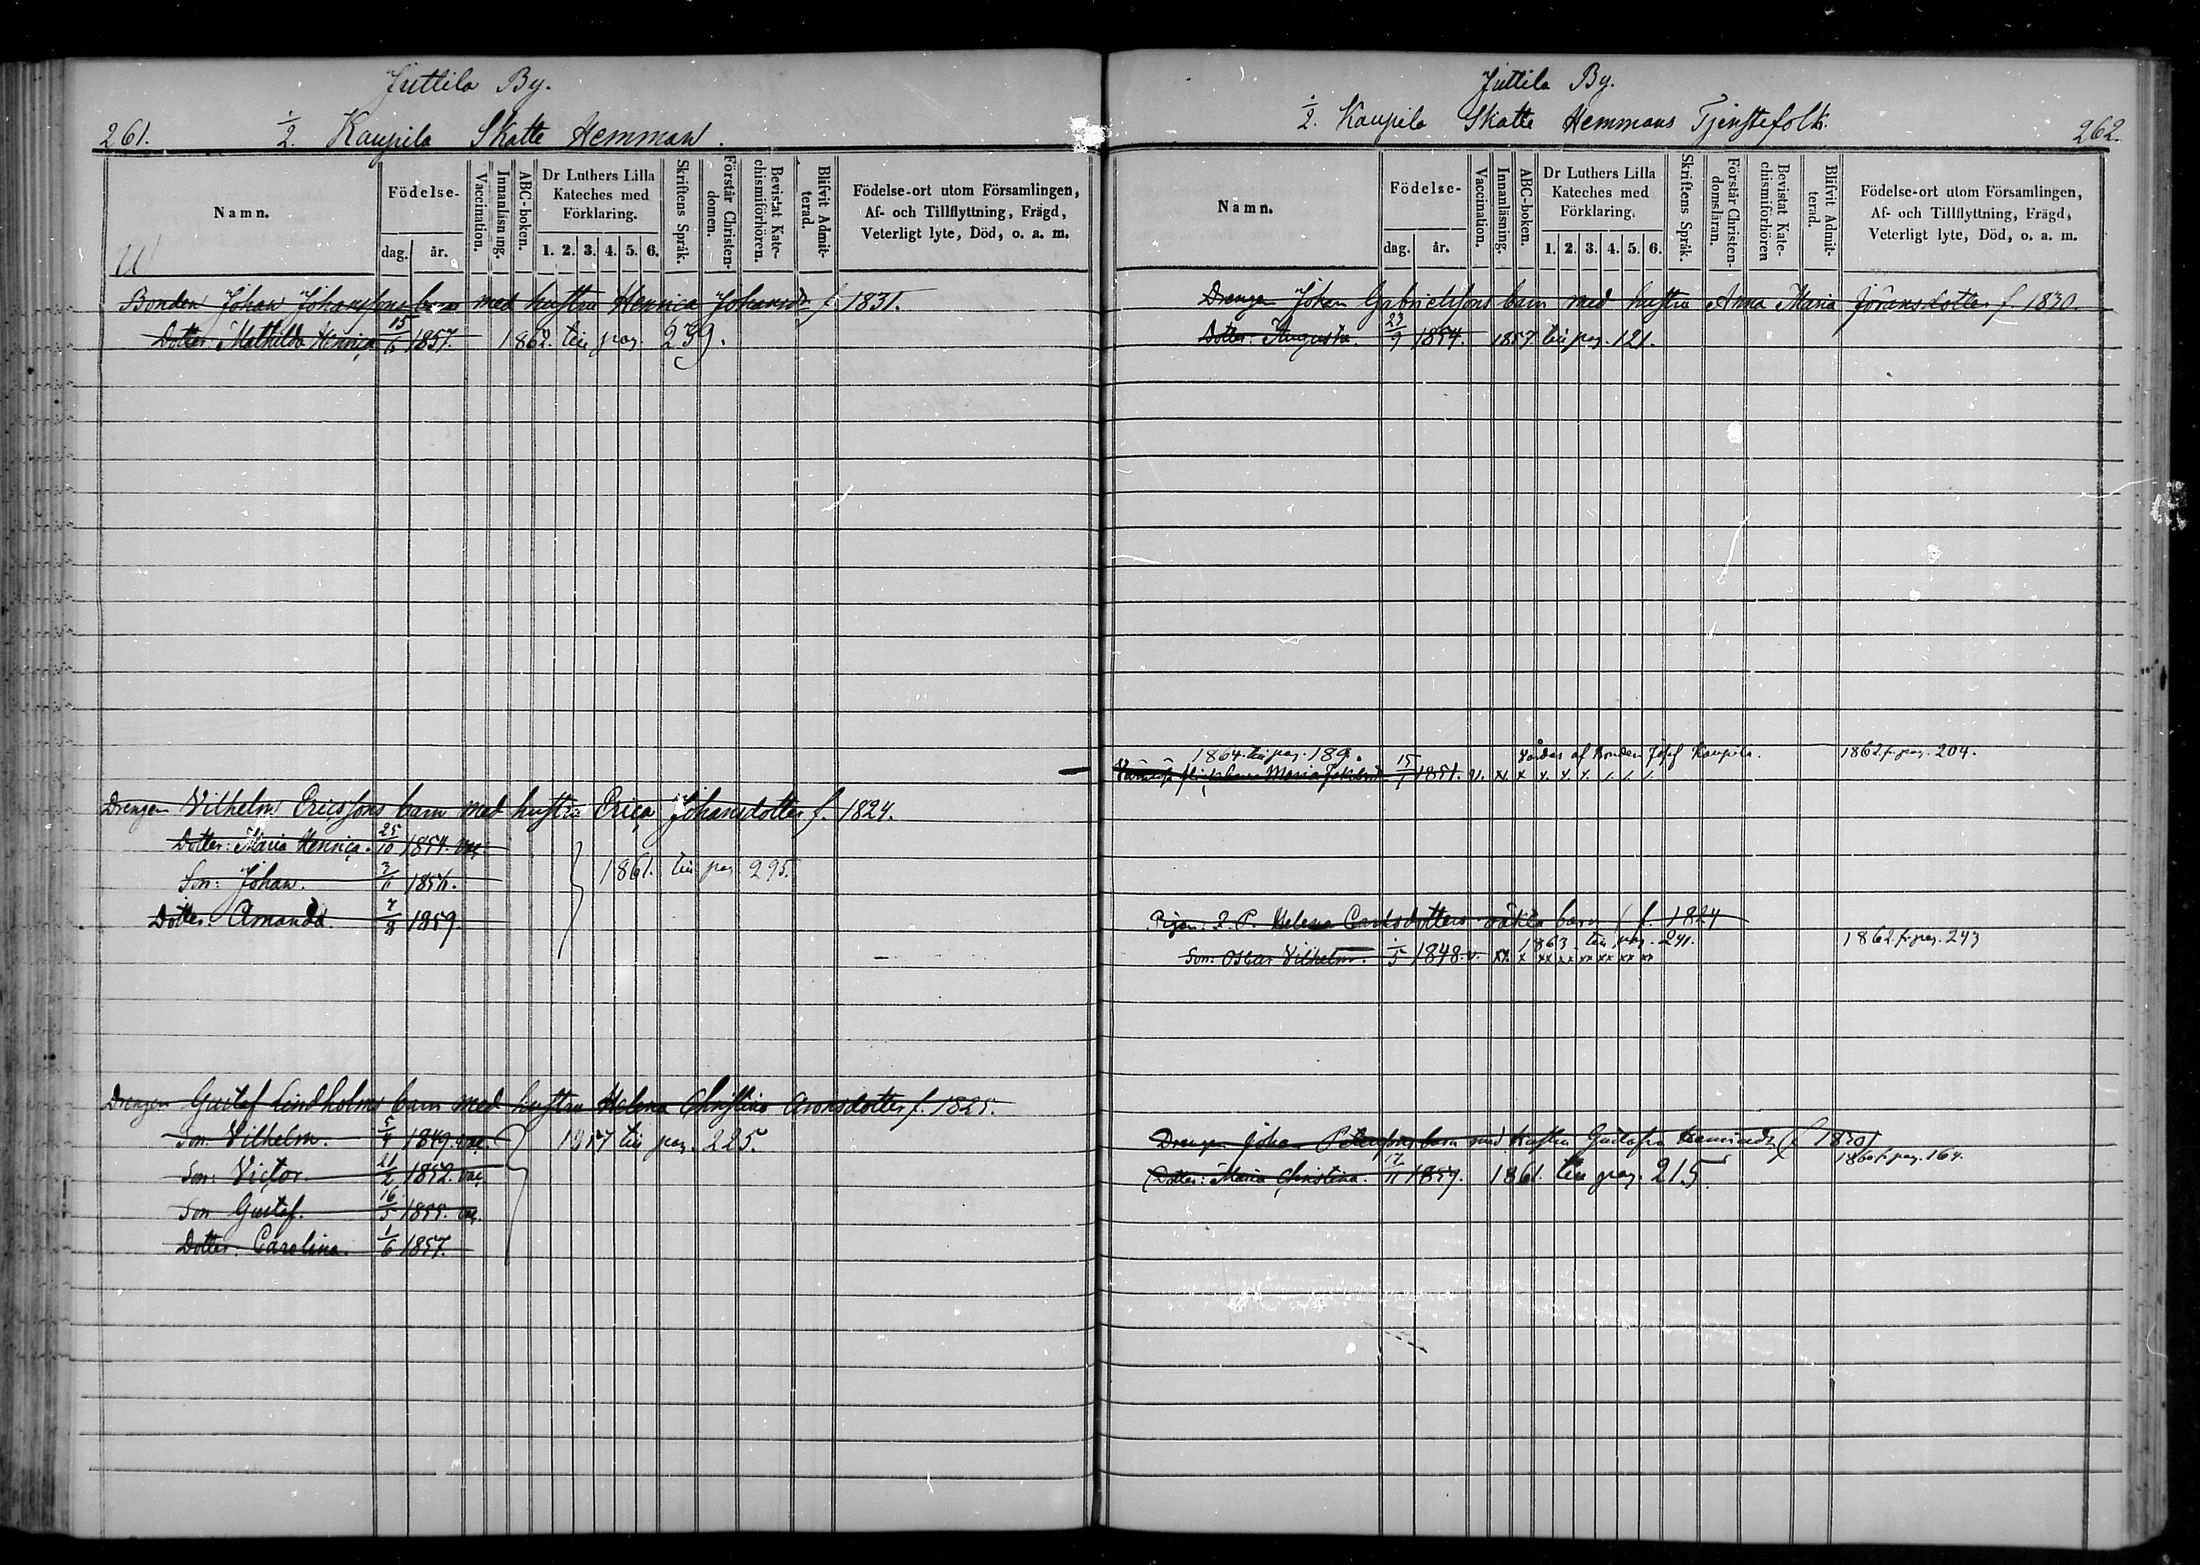 Juttila By.
261. 1/2. Kaupila Skatte Hemman.
Namn.
Födelse-
dag. år.
Vaccination.
Innanläsning.
ABC-boken.
Dr Luthers Lilla Kateches med Förklaring.
1. 2. 3. 4. 5. 6.
Skriftens Språk.
Förstår Christen-domen.
Bevistat Kate-chismiförhören.
Blifvit Admit-terad.
Födelse-ort utom Församlingen, Af- och Tillflyttning, Frägd, Veterligt lyte, Död, o. a. m.
Bonden Johan Johanssons barn med hustru Henrica Johansdr f. 1831.
Dotter: Mathilda Henrica 15/6 1857. 1862. till pag. 239.
Drengen Vilhelm Ericssons barn med hustru Erica Johansdotter f. 1824.
Dotter: Maria Henrica. 25/10 1854. vac.
Son: Johan. 3/11 1856. 1861. till pag 295.
Dotter. Amanda. 7/8 1859.
Drengen Gustaf Lindholms barn med hustru Helena Christina Aronsdotter f. 1825.
Son. Vilhelm. 5/4 1849. vac. 1857 till pag. 225.
Son: Victor. 21/2 1852. vac.
Son Gustaf. 16/5 1855. vac.
Dotter. Carolina. 1/6 1857.
Juttila By.
1/2. Kaupila Skatte Hemmans Tjenstefolk. 262.
Namn.
Födelse-
dag. år.
Vaccination.
Innanläsning.
ABC-boken.
Dr Luthers Lilla Kateches med Förklaring.
1. 2. 3. 4. 5. 6.
Skriftens Språk.
Förstår Christen-domsläran.
Bevistat Kate-chismiförhören
Blifvit Admit-terad.
Födelse-ort utom Församlingen, Af- och Tillflyttning, Frägd, Veterligt lyte, Död, o. a. m.
Drengen Johan Gabrielssons barn med hustru Anna Maria Göransdotter f. 1830.
Dotter: Augusta. 23/9 1854. 1857 till pag. 121.
1864. till pag. 189. Vårdas af Bonden Josef Kaupila. 1862 f. pag. 204.
Maria 15/ 1851. v. x. x x x x / / /
Pigan I. P. Helena Carlsdotters oäkta barn (f. 1824
1863. till pag. 241. 1862 f. pag. 243
Son: Oscar Vilhelm. 1/5 1848. v. xx. x xx xx xx xx xx xx
Drengen Johan Peterssons barn med hustru Gustafva (f 1830)
1860 f. pag. 164.
Dotter: Maria Christina. 17/11 1859. 1861. till pag. 215.